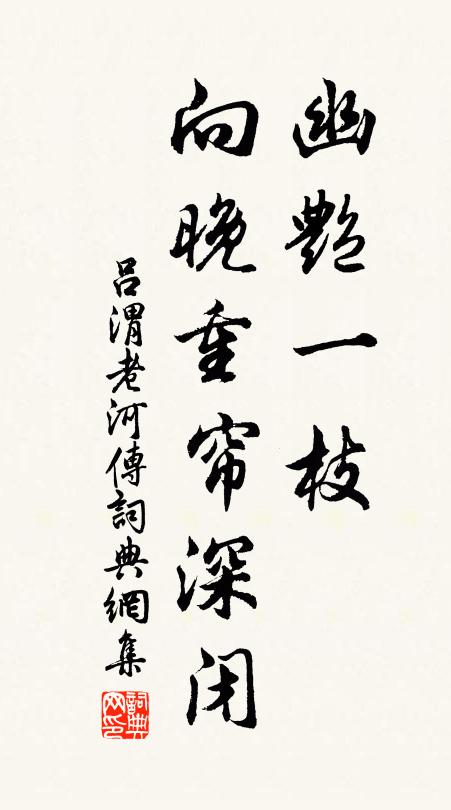 幽艷一枝
向晚重帘深闭
吕渭老河傳詞典網集
詞典网印